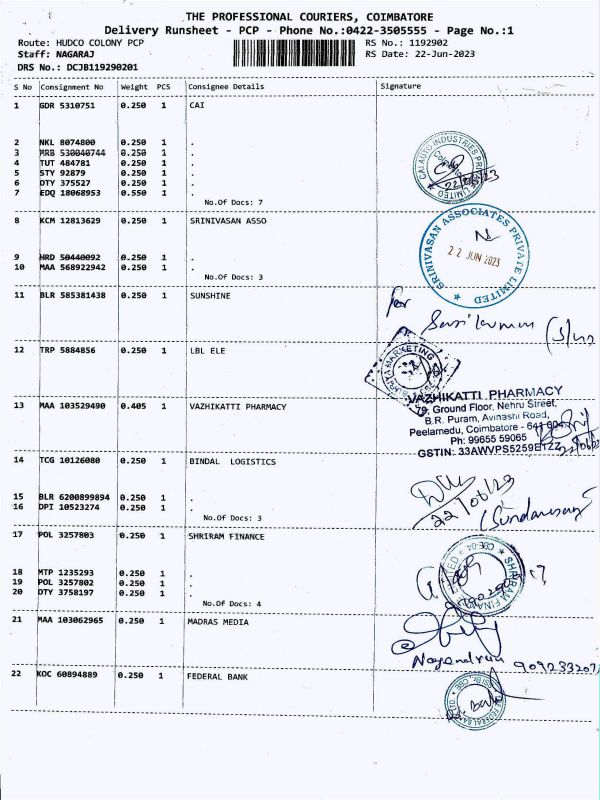 THE PROFESSIONAL COURIERS, COIMBATORE
Delivery Runsheet - PCP - Phone No.:0422-3505555 - Page No.:1
Route: HUDCO COLONY PCP RS No.: 1192902
Staff: NAGARAJ RS Date: 22-Jun-2023
DRS No.: DCJB119290201
S No Consignment No Weight PCS Consignee Details Signature
1 GDR 5310751 0.250 1 CAI
2 NKL 8074800 0.250 1 .
3 MRB 530040744 0.250 1 .
4 TUT 484781 0.250 1 .
5 STY 92879 0.250 1 .
6 OTY 375527 0.250 1 .
7 EDQ 18068953 0.550 1 .
No.Of Docs: 7
CAI AUTO INDUSTRIES PRIVATE LIMITED
8 KCM 12813629 0.250 1 SRINIVASAN ASSO
9 HRD 50440092 0.250 1 .
10 MAA 568922942 0.250 1 .
No.Of Docs: 3
SRINIVASAN ASSOCIATES PRIVATE LIMITED
22 JUN 2023
11 BLR 585381438 0.250 1 SUNSHINE
for
12 TRP 5884856 0.250 1 LBL ELE
MARKETING
13 MAA 103529490 0.405 1 VAZHIKATTI PHARMACY
VAZHIKATTI PHARMACY
79, Ground Floor, Nehru Street,
B.R. Puram, Avinashi Road,
Peelamedu, Coimbatore - 641 004.
Ph: 99655 59065
GSTIN: 33AWVPS5259E1ZZ
14 TCG 10126080 0.250 1 BINDAL LOGISTICS
15 BLR 6200899894 0.250 1 .
16 DPI 10523274 0.250 1 .
No.Of Docs: 3
22/06/23
17 POL 3257803 0.250 1 SHRIRAM FINANCE
18 MTP 1235293 0.250 1 .
19 POL 3257802 0.250 1 .
20 OTY 3758197 0.250 1 .
No.Of Docs: 4
SHRIRAM FINANCE LIMITED CBE-04
21 MAA 103062965 0.250 1 MADRAS MEDIA
22 KOC 60894889 0.250 1 FEDERAL BANK
FEDERAL BANK